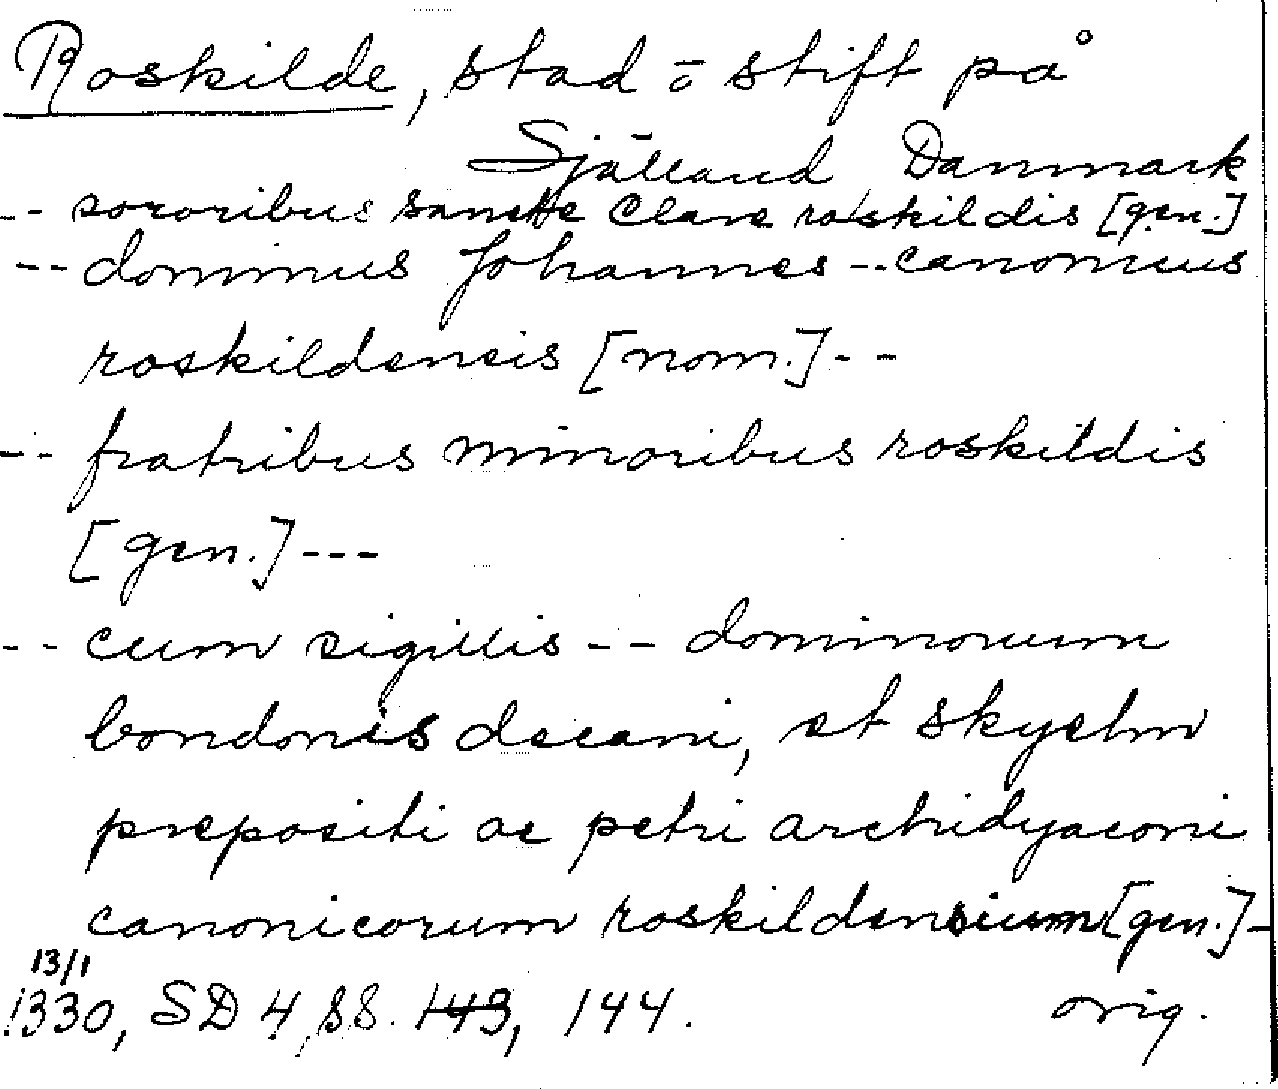 Roskilde, stad o stift på
Själland Danmark
-- sororibus sancte Clare roskildis [gen.]
-- dominus Johannes -- canonicus
roskildensis [nom.] --
-- fratribus minoribus roskildis
[gen.] ---
-- cum sigillis -- dominorum
bondonis decani, et skyelm
prepositi ac petri archidyaconi
canonicorum roskildensium [gen.] -
13/1
1330, SD 4, SS. 143, 144. orig.